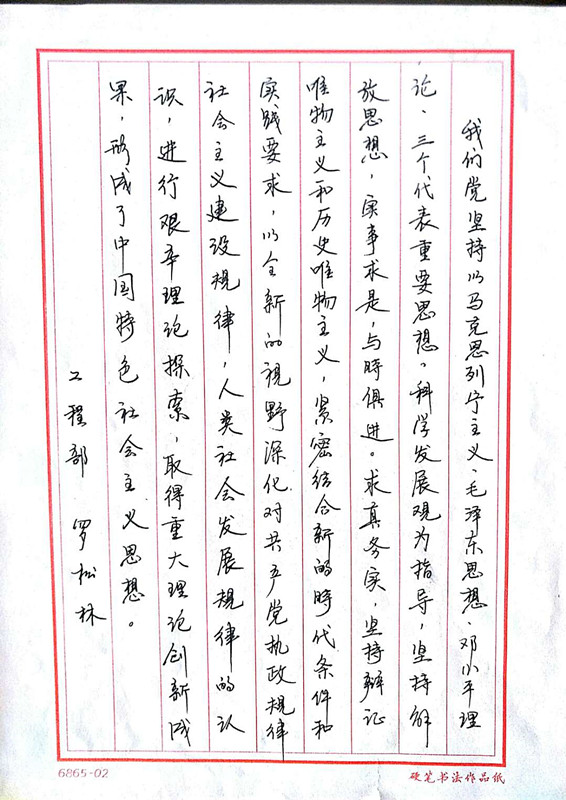 我们党坚持以马克思列宁主义、毛泽东思想、邓小平理
论、三个代表重要思想。科学发展观为指导，坚持解
放思想，实事求是，与時俱进。求真务实，坚持辩证
唯物主义和历史唯物主义，紧密结合新的時代条件和
实践要求，以全新的視野深化对共产党执政規律
社会主义建设規律，人类社会发展規律的认
识，进行艰辛理论探索，取得重大理论创新成
果，形成了中国特色社会主义思想。
工程部 罗松林
6865-02
硬笔书法作品纸